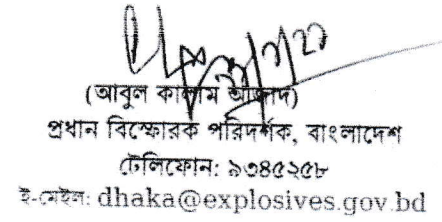 (আবুল কালাম আজাদ)
প্রধান বিস্ফোরক পরিদর্শক, বাংলাদেশ
টেলিফোন: ৯৩৪৫২৫৮
ই-মেইল: dhaka@explosives.gov.bd